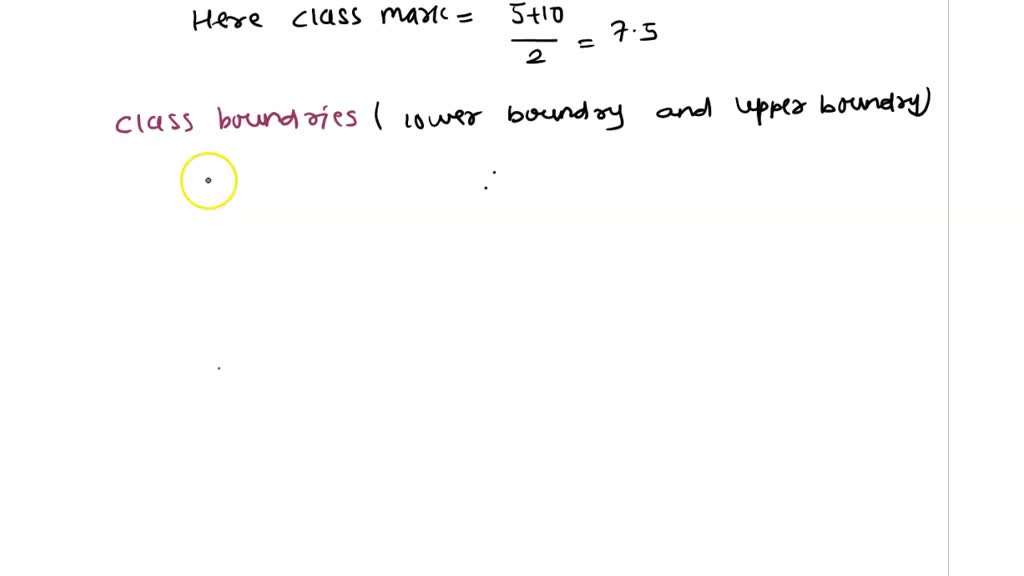 Here class mark = 5+10/2 = 7.5
class boundries ( lower boundry and upper boundry)